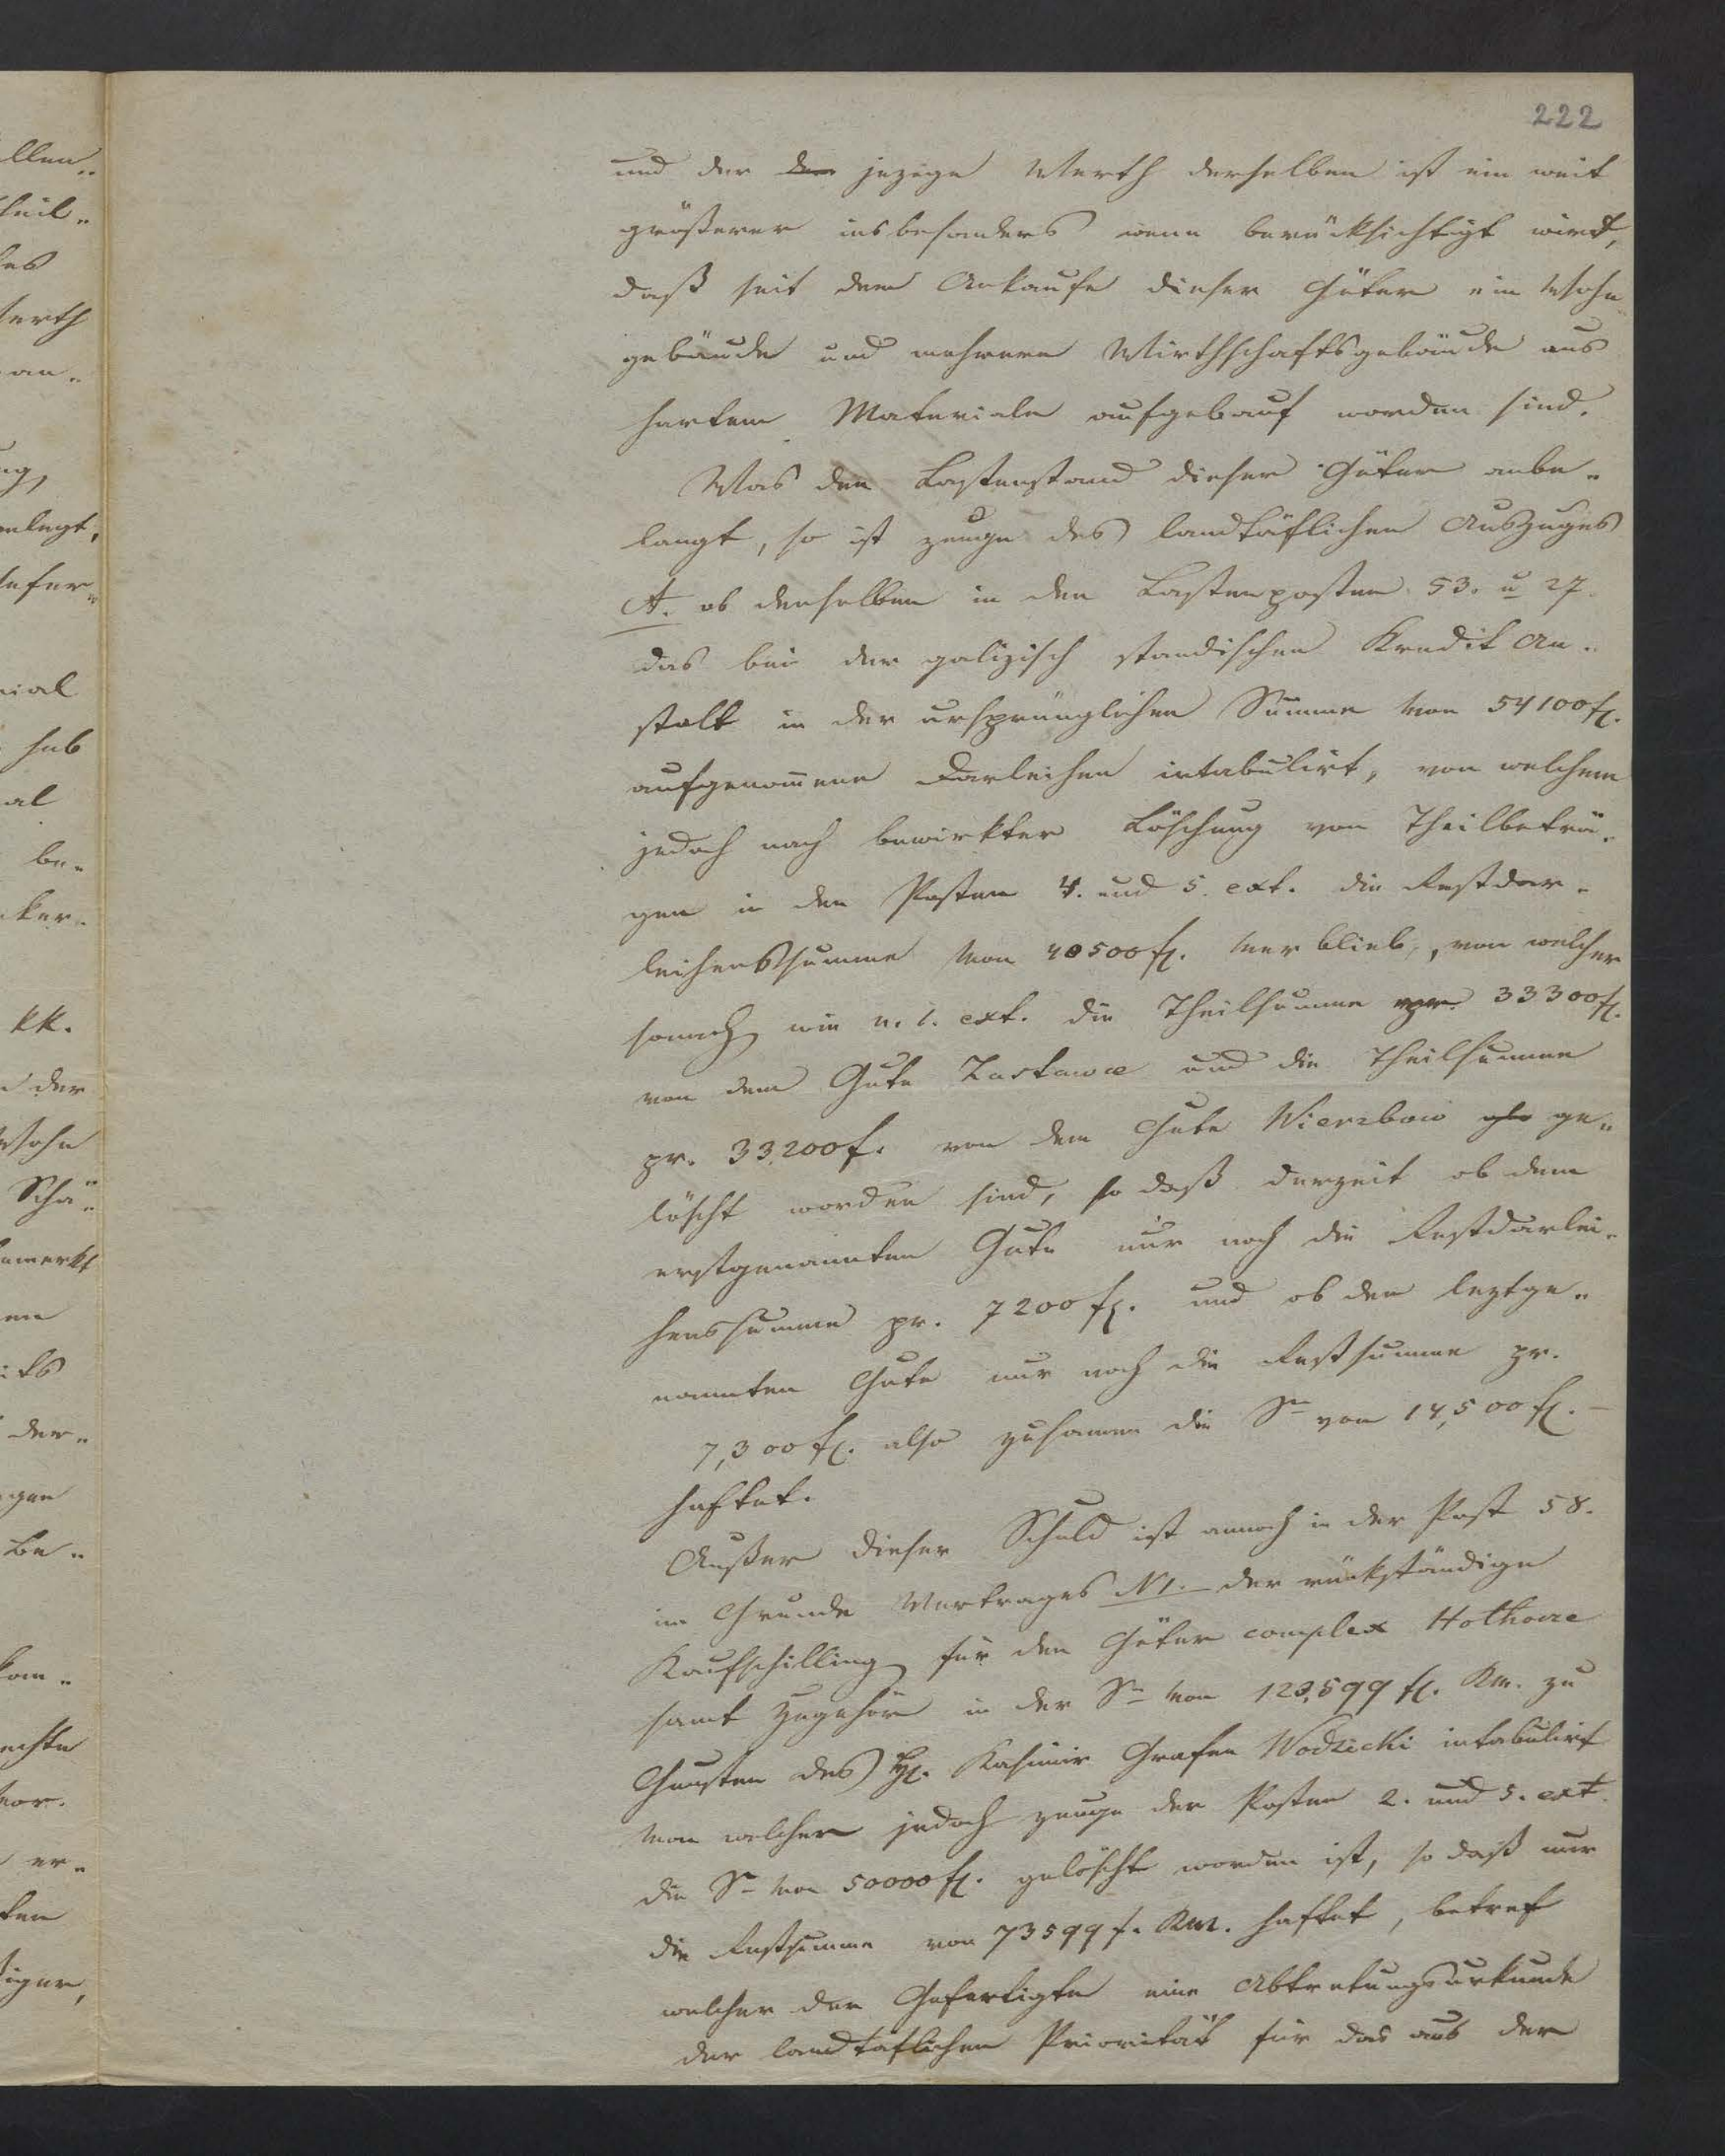 222
und der der jezige Werth derselben ist ein weit
größerer insbesonders wenn berücksichtigt wird,
daß seit dem Ankaufe dieser Güter ein Wohn
gebäude und mehrere Wirthschaftsgebäude aus
hartem Materiale aufgebaut worden sind.
Was den Lastenstand dieser Güter anbe-
langt, so ist zeuge des landtäflichen Auszuges
A. ob denselben in den Lastenposten 53. u 27
das bei der galizisch standischen Kredit An-
stalt in der ursprünglichen Summe von 54100 f.
aufgenommene Darleihen intabulirt, von welchem
jedoch nach bewirkter Löschung von Theilbeträ-
gen in den Posten 4. und 5. ext. die Restdar-
leihenssumme von 40500 f. verblieb, von welcher
sonach wie n. 1. ext. die Theilsumme pr. 33300 f.
von dem Gute Zastawce und die Theilsumme
pr. 33.200 f. von dem Gute Wierzbow ge-
löscht worden sind, so daß derzeit ob dem
erstgenannten Gute nur noch die Restdarlei-
henssumme pr. 7200 f. und ob den leztge-
nannten Gute nur noch die Restsumme pr.
7,300 f. also zusamen die Se von 14,500 f. –
haftet.
Außer dieser Schuld ist annoch in der Post 58.
im Grunde Vertrages N 1. der rückständige
Kaufschilling für den Güter complex Hothowce
samt Zugehör in der Se von 123,599 f. Km. zu
Gunsten des H. Kasimir Grafen Wodzicki intabulirt
von welcher jedoch zeuge der Posten 2. und 5. ext.
die Se von 50000 f. gelöscht worden ist, so daß nur
die Restsumme von 73599 f. Km. haftet, betref
welcher der Gefertigte eine Abtretungsurkunde
der landtäflichen Priorität für das aus der
llen-
theil-
es
Werth
an-
ng,
nlegt,
nial
hab
al
be-
ker-
kk.
der
Wohn
Schä-
bemerkt
en
der-
gen
be-
kom-
echte
vor-
er-
ten